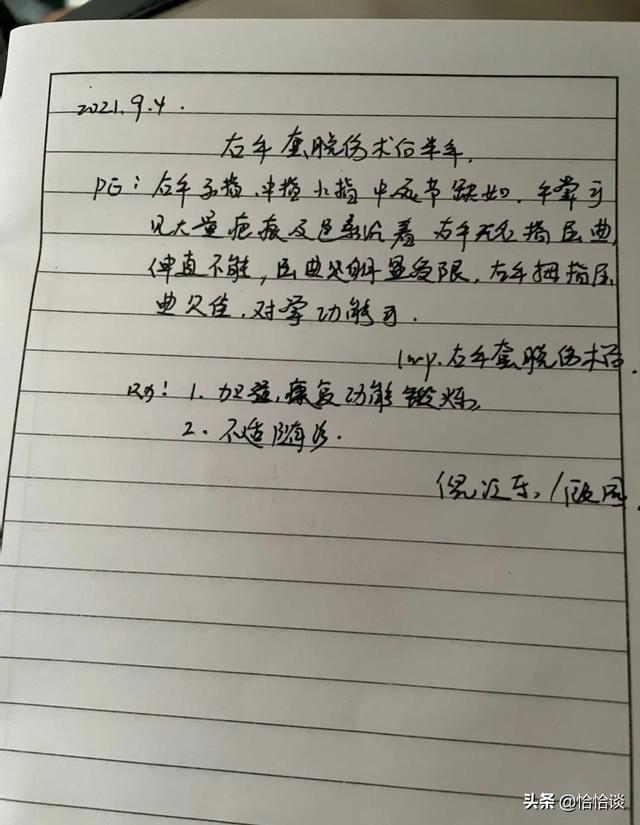 2021.9.4.
右手套脱伤术后半年.
PE: 右手示指、中指、小指中远节缺如. 手掌可
见大量疤痕及色素沉着 右手 指屈曲,
伸直不能, 屈曲 明显受限. 右手拇指屈
曲欠佳. 对掌功能可.
Imp. 右手套脱伤术后.
Rx: 1. 加强, 康复功能锻炼.
2. 不适随诊.
头条 @恰恰谈